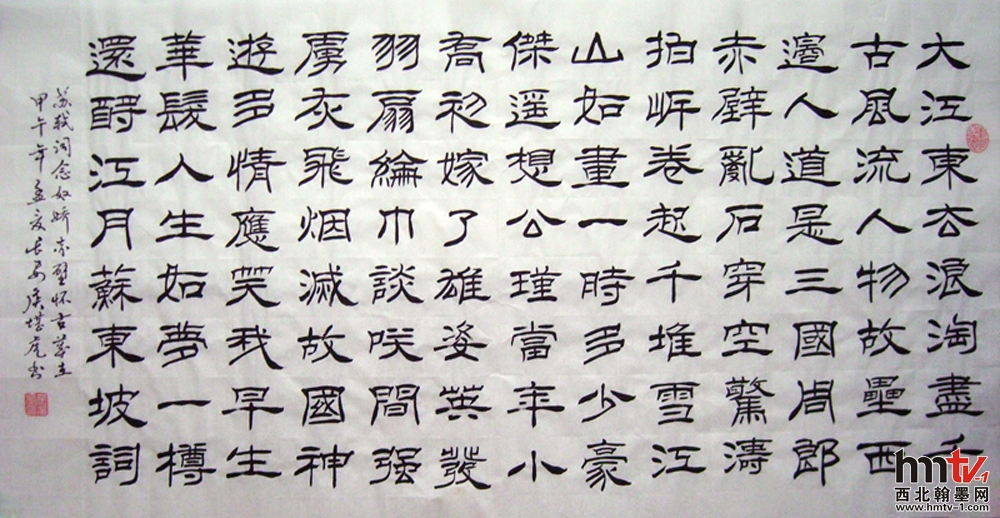 大江東去浪淘盡千
古風流人物故壘西
邊人道是三國周郎
赤壁亂石穿空驚濤
拍岸卷起千堆雪江
山如畫一時多少豪
傑遥想公瑾當年小
喬初嫁了雄姿英發
羽扇綸巾談咲間强
虜灰飛烟滅故國神
遊多情應笑我早生
華髮人生如夢一樽
還酹江月蘇東坡詞
苏轼词念奴娇赤壁怀古岁在
甲午年孟夏长安书
hmtv-1
西北翰墨网
www.hmtv-1.com